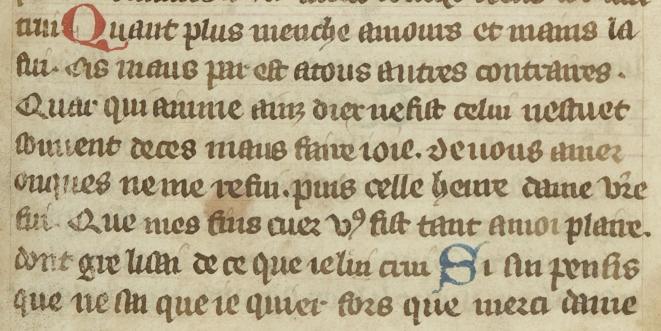 cuuiQuant plus menche amours et mains la
fui. Cis maus par est atous autres contraires.
Quar qui aimme ainz diex ne fist celui nestuet
souuent deces maus faire ioie. de uous amer
onques ne me refui. puis celle heure dame vr̃e
fui. Que mes fins cuer vꝰ fist tant a moi plaire.
dont gre li sai de ce que ie lui crui Si san pensis
que ne sai que ie quier fors que merci dame